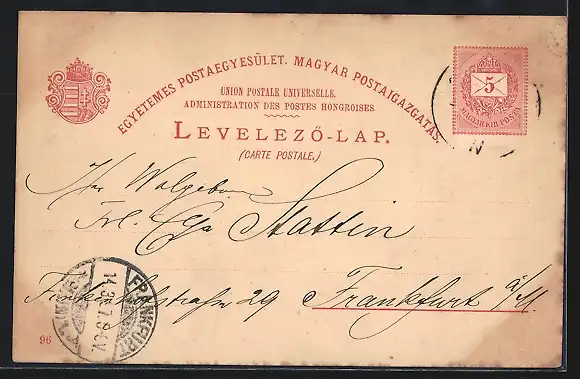 EGYETEMES POSTAEGYESÜLET. MAGYAR POSTAIGAZGATÁS.
UNION POSTALE UNIVERSELLE.
ADMINISTRATION DES POSTES HONGROISES.
LEVELEZŐ-LAP.
(CARTE POSTALE.)
5
MAGYAR KIR. POSTA
Ihr Wolgeboren
Frl. Elsa Stattin
29 Frankfurt a/M.
FRANKFURT
96